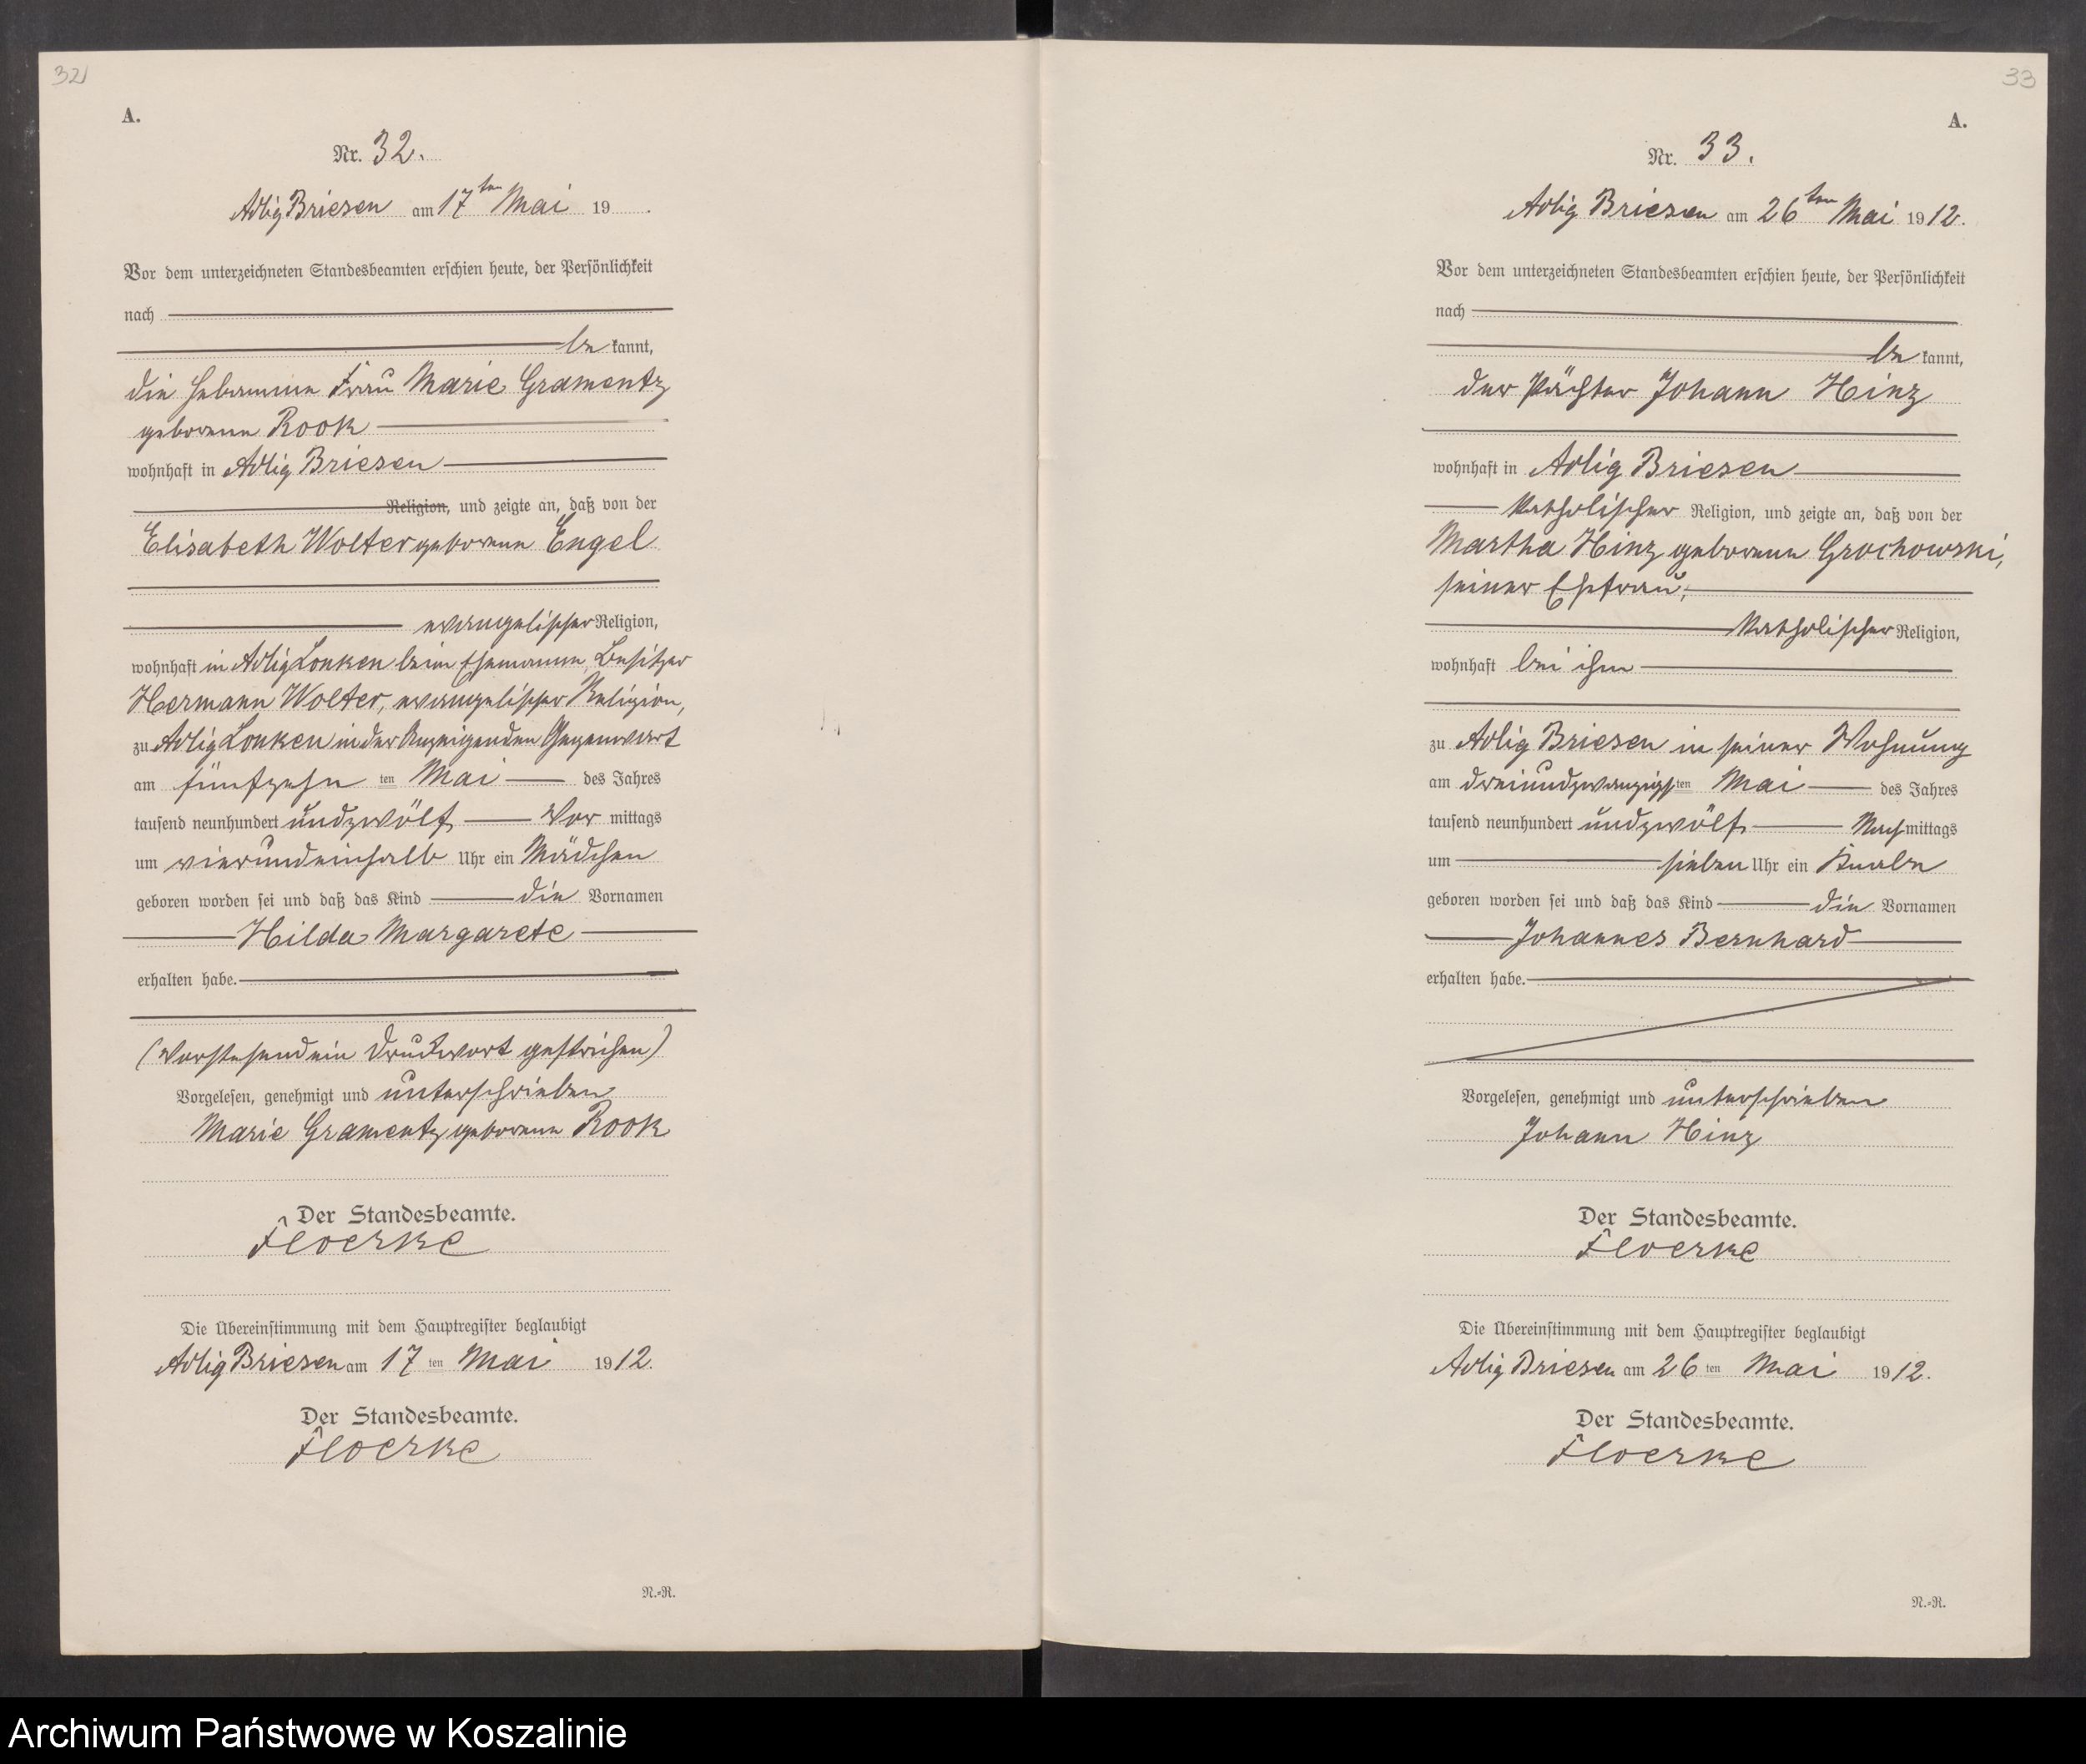 32
A.
Nr. 32.
Adlig Briesen am 17ten Mai 19 .
Vor dem unterzeichneten Standesbeamten erschien heute, der Persönlichkeit
nach
be kannt,
die Hebamme Frau Marie Gramentz
geborene Rook
wohnhaft in Adlig Briesen
Religion, und zeigte an, daß von der
Elisabeth Wolter geborene Engel
evangelischer Religion,
wohnhaft in Adlig Lonken beim Ehemanne, Besitzer
Hermann Wolter, evangelischer Religion,
zu Adlig Lonken in der Anzeigenden Gegenwart
am fünfzehn ten Mai des Jahres
tausend neunhundert undzwölf Vor mittags
um vierundeinhalb Uhr ein Mädchen
geboren worden sei und daß das Kind die Vornamen
Hilda Margarete
erhalten habe.
(Vorstehend ein Druckwort gestrichen)
Vorgelesen, genehmigt und unterschrieben
Marie Gramentz geborene Rook
Der Standesbeamte.
Floerke
Die Übereinstimmung mit dem Hauptregister beglaubigt
Adlig Briesen am 17 ten Mai 1912.
Der Standesbeamte.
Floerke
N.-R.
33
A.
Nr. 33.
Adlig Briesen am 26ten Mai 1912.
Vor dem unterzeichneten Standesbeamten erschien heute, der Persönlichkeit
nach
be kannt,
der Pächter Johann Hinz
wohnhaft in Adlig Briesen
katholischer Religion, und zeigte an, daß von der
Martha Hinz geborene Grochowski,
seiner Ehefrau,
katholischer Religion,
wohnhaft bei ihm
zu Adlig Briesen in seiner Wohnung
am dreiundzwanzigsten Mai des Jahres
tausend neunhundert undzwölf Nachmittags
um sieben Uhr ein Knabe
geboren worden sei und daß das Kind die Vornamen
Johannes Bernhard
erhalten habe.
Vorgelesen, genehmigt und unterschrieben
Johann Hinz
Der Standesbeamte.
Floerke
Die Übereinstimmung mit dem Hauptregister beglaubigt
Adlig Briesen am 26 ten Mai 1912.
Der Standesbeamte.
Floerke
N.-R.
Archiwum Państwowe w Koszalinie